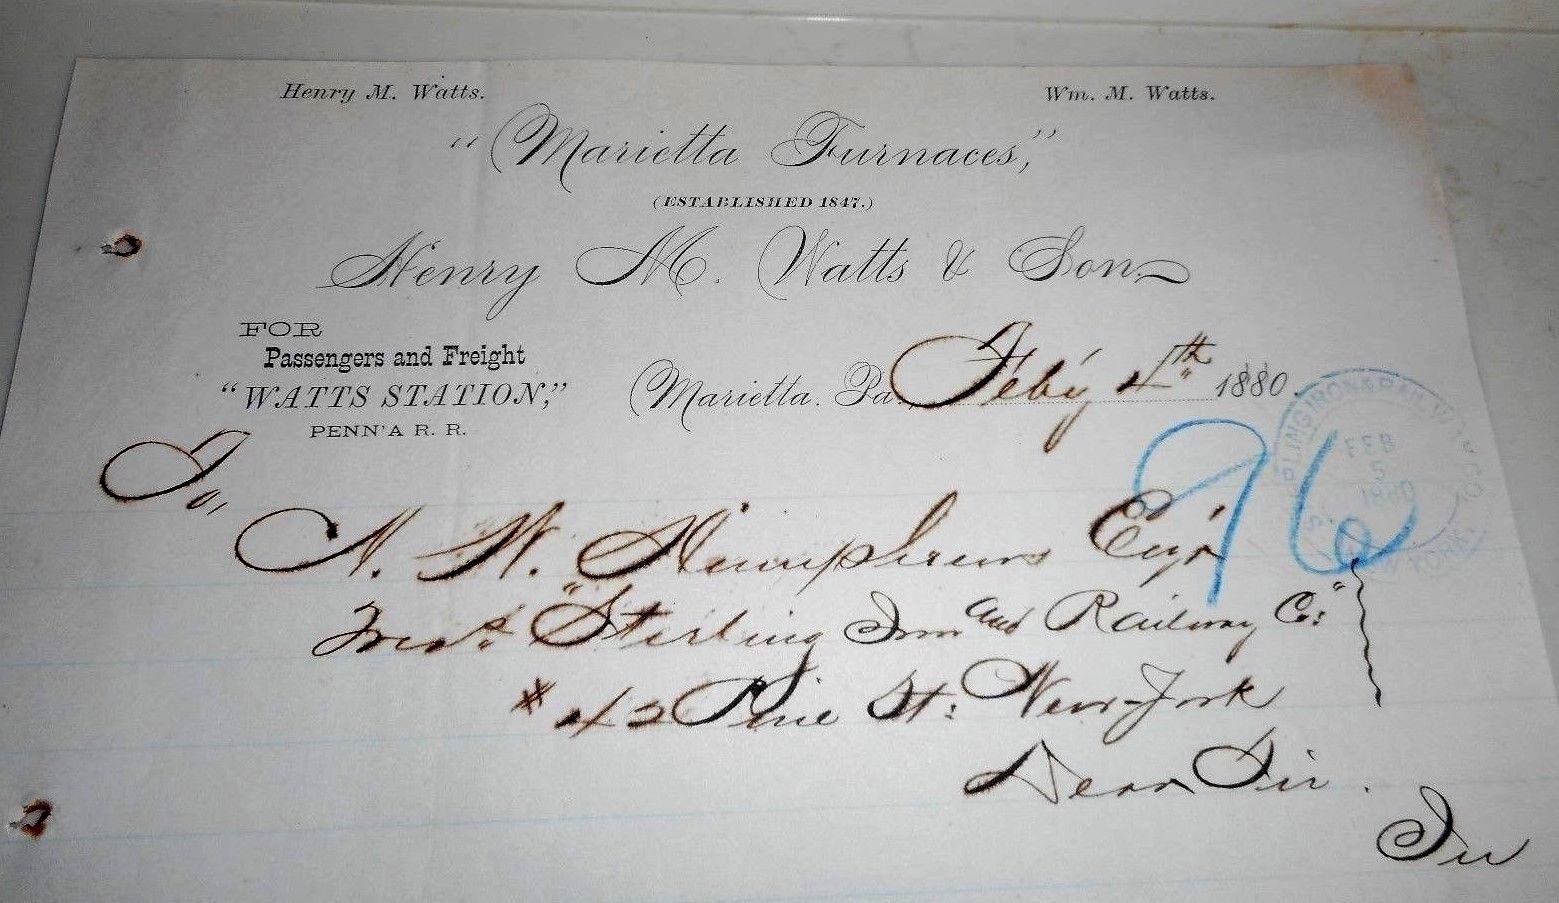 Henry M. Watts.
Wm. M. Watts.
"Marietta Furnaces,"
(ESTABLISHED 1847.)
Henry M. Watts & Son
FOR
Passengers and Freight
"WATTS STATION,"
PENN'A R. R.
Marietta. Pa., Feb'y 4th 1880.
STERLING IRON & RAILWAY CO.
FEB
5
1880
NEW YORK.
96
To,
A. W. Humphreys Esqr
"Sterling Iron and Railway Co:"
# 42 Pine St: New-York
Dear Sir.
In